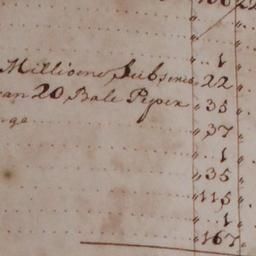 " 1
Millioene Subsevie " 22
an 20 Bale Peper " 35
nge " 37
" 1
" 35
" 115
" 1
" 167